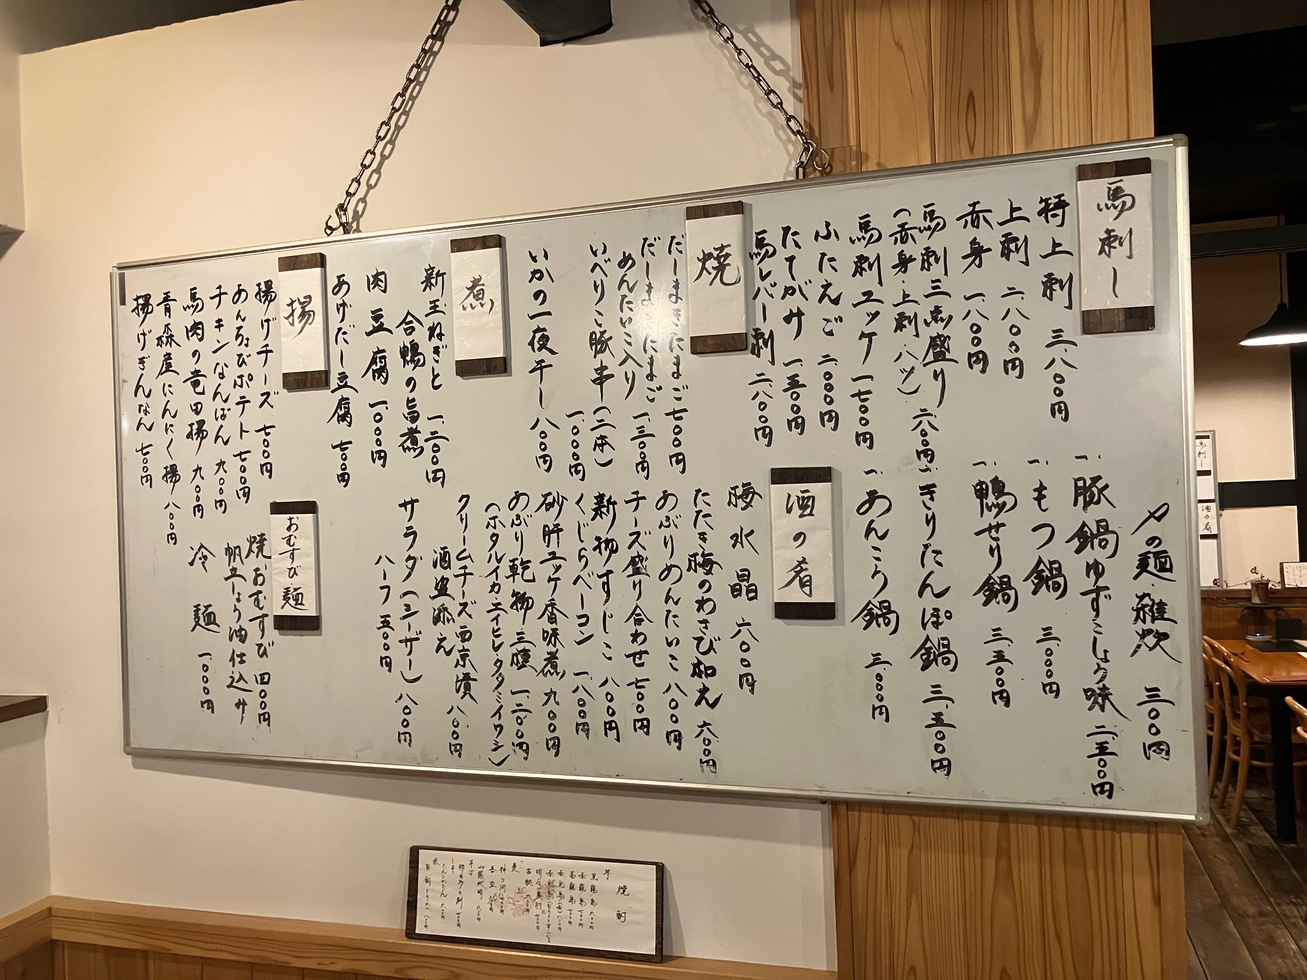 馬刺し
特上刺 三、八〇〇円
上刺 二、八〇〇円
赤身 一、八〇〇円
馬刺三点盛り
(赤身・上刺・ハツ)
馬刺ユッケ 一、七〇〇円
ふたえご 二、〇〇〇円
たてがみ 一、三〇〇円
馬レバー刺 二、八〇〇円
焼
だしまきたまご 七〇〇円
だしまきたまご
めんたいこ入り 一、三〇〇円
いべりこ豚串(二本)
一、〇〇〇円
いかの一夜干し 八〇〇円
煮
新玉ねぎと
合鴨の旨煮 一、二〇〇円
肉豆腐 一、〇〇〇円
あげだし豆腐 七〇〇円
揚
揚げチーズ 七〇〇円
あんちょびポテト 七〇〇円
チキンなんばん 九〇〇円
馬肉の竜田揚 九〇〇円
青森産にんにく揚 八〇〇円
揚げぎんなん 七〇〇円
〆の麺 雑炊 三〇〇円
一、豚鍋ゆずこしょう味 二、五〇〇円
一、もつ鍋 三、〇〇〇円
一、鴨せり鍋 三、五〇〇円
一、きりたんぽ鍋 三、五〇〇円
一、あんこう鍋 三、〇〇〇円
酒の肴
梅水晶 六〇〇円
たたき梅のわさび和え 六〇〇円
あぶりめんたいこ 八〇〇円
チーズ盛り合わせ 七〇〇円
新物すじこ 八〇〇円
くじらベーコン 一、八〇〇円
砂肝ユッケ香味煮 九〇〇円
あぶり乾物三種 一、二〇〇円
(ホタルイカ・エイヒレ・タタミイワシ)
クリームチーズ西京漬
酒盗添え 八〇〇円
サラダ(シーザー) 八〇〇円
ハーフ 五〇〇円
おむすび 麺
焼おむすび 四〇〇円
帆立しょう油仕込み
冷麺 一、〇〇〇円
焼酎
芋
麦
米
馬刺し
酒の肴